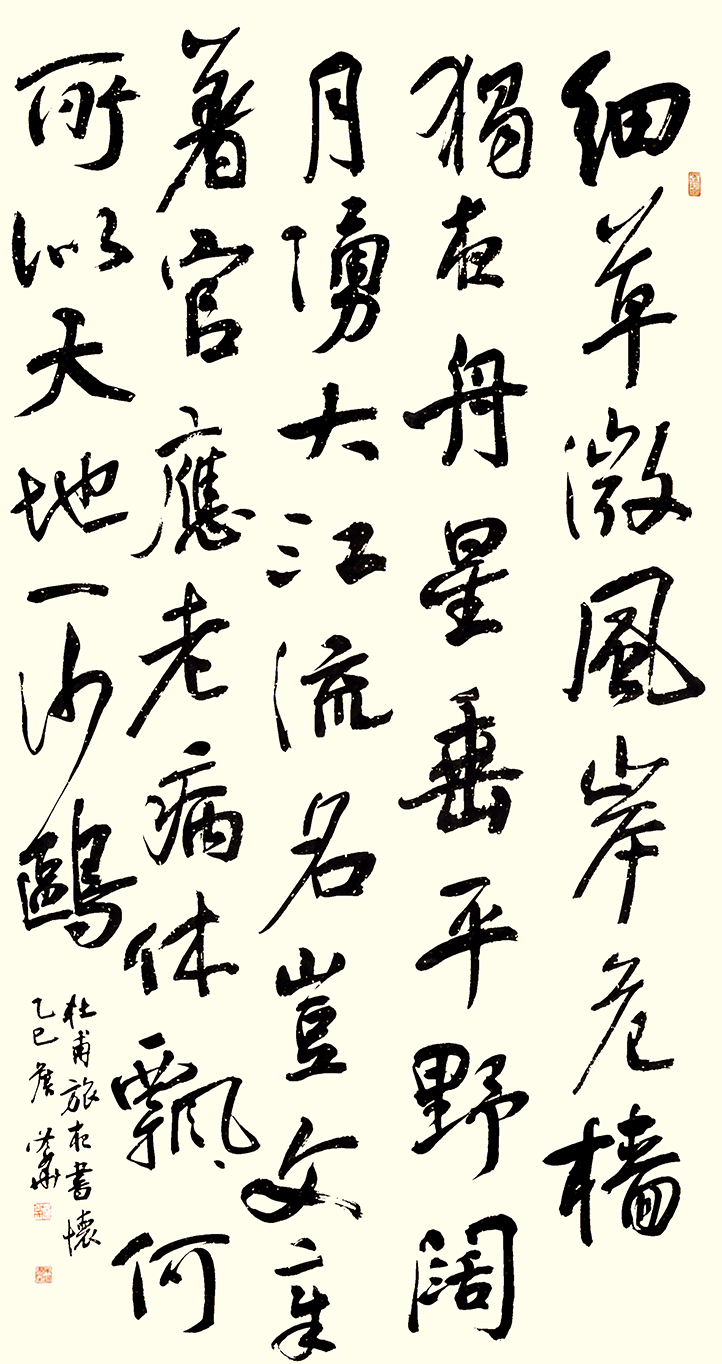 細草微風岸危檣
獨夜舟星垂平野闊
月湧大江流名豈文章
著官應老病休飄々何
所似天地一沙鷗
杜甫旅夜書懷
乙巳詹